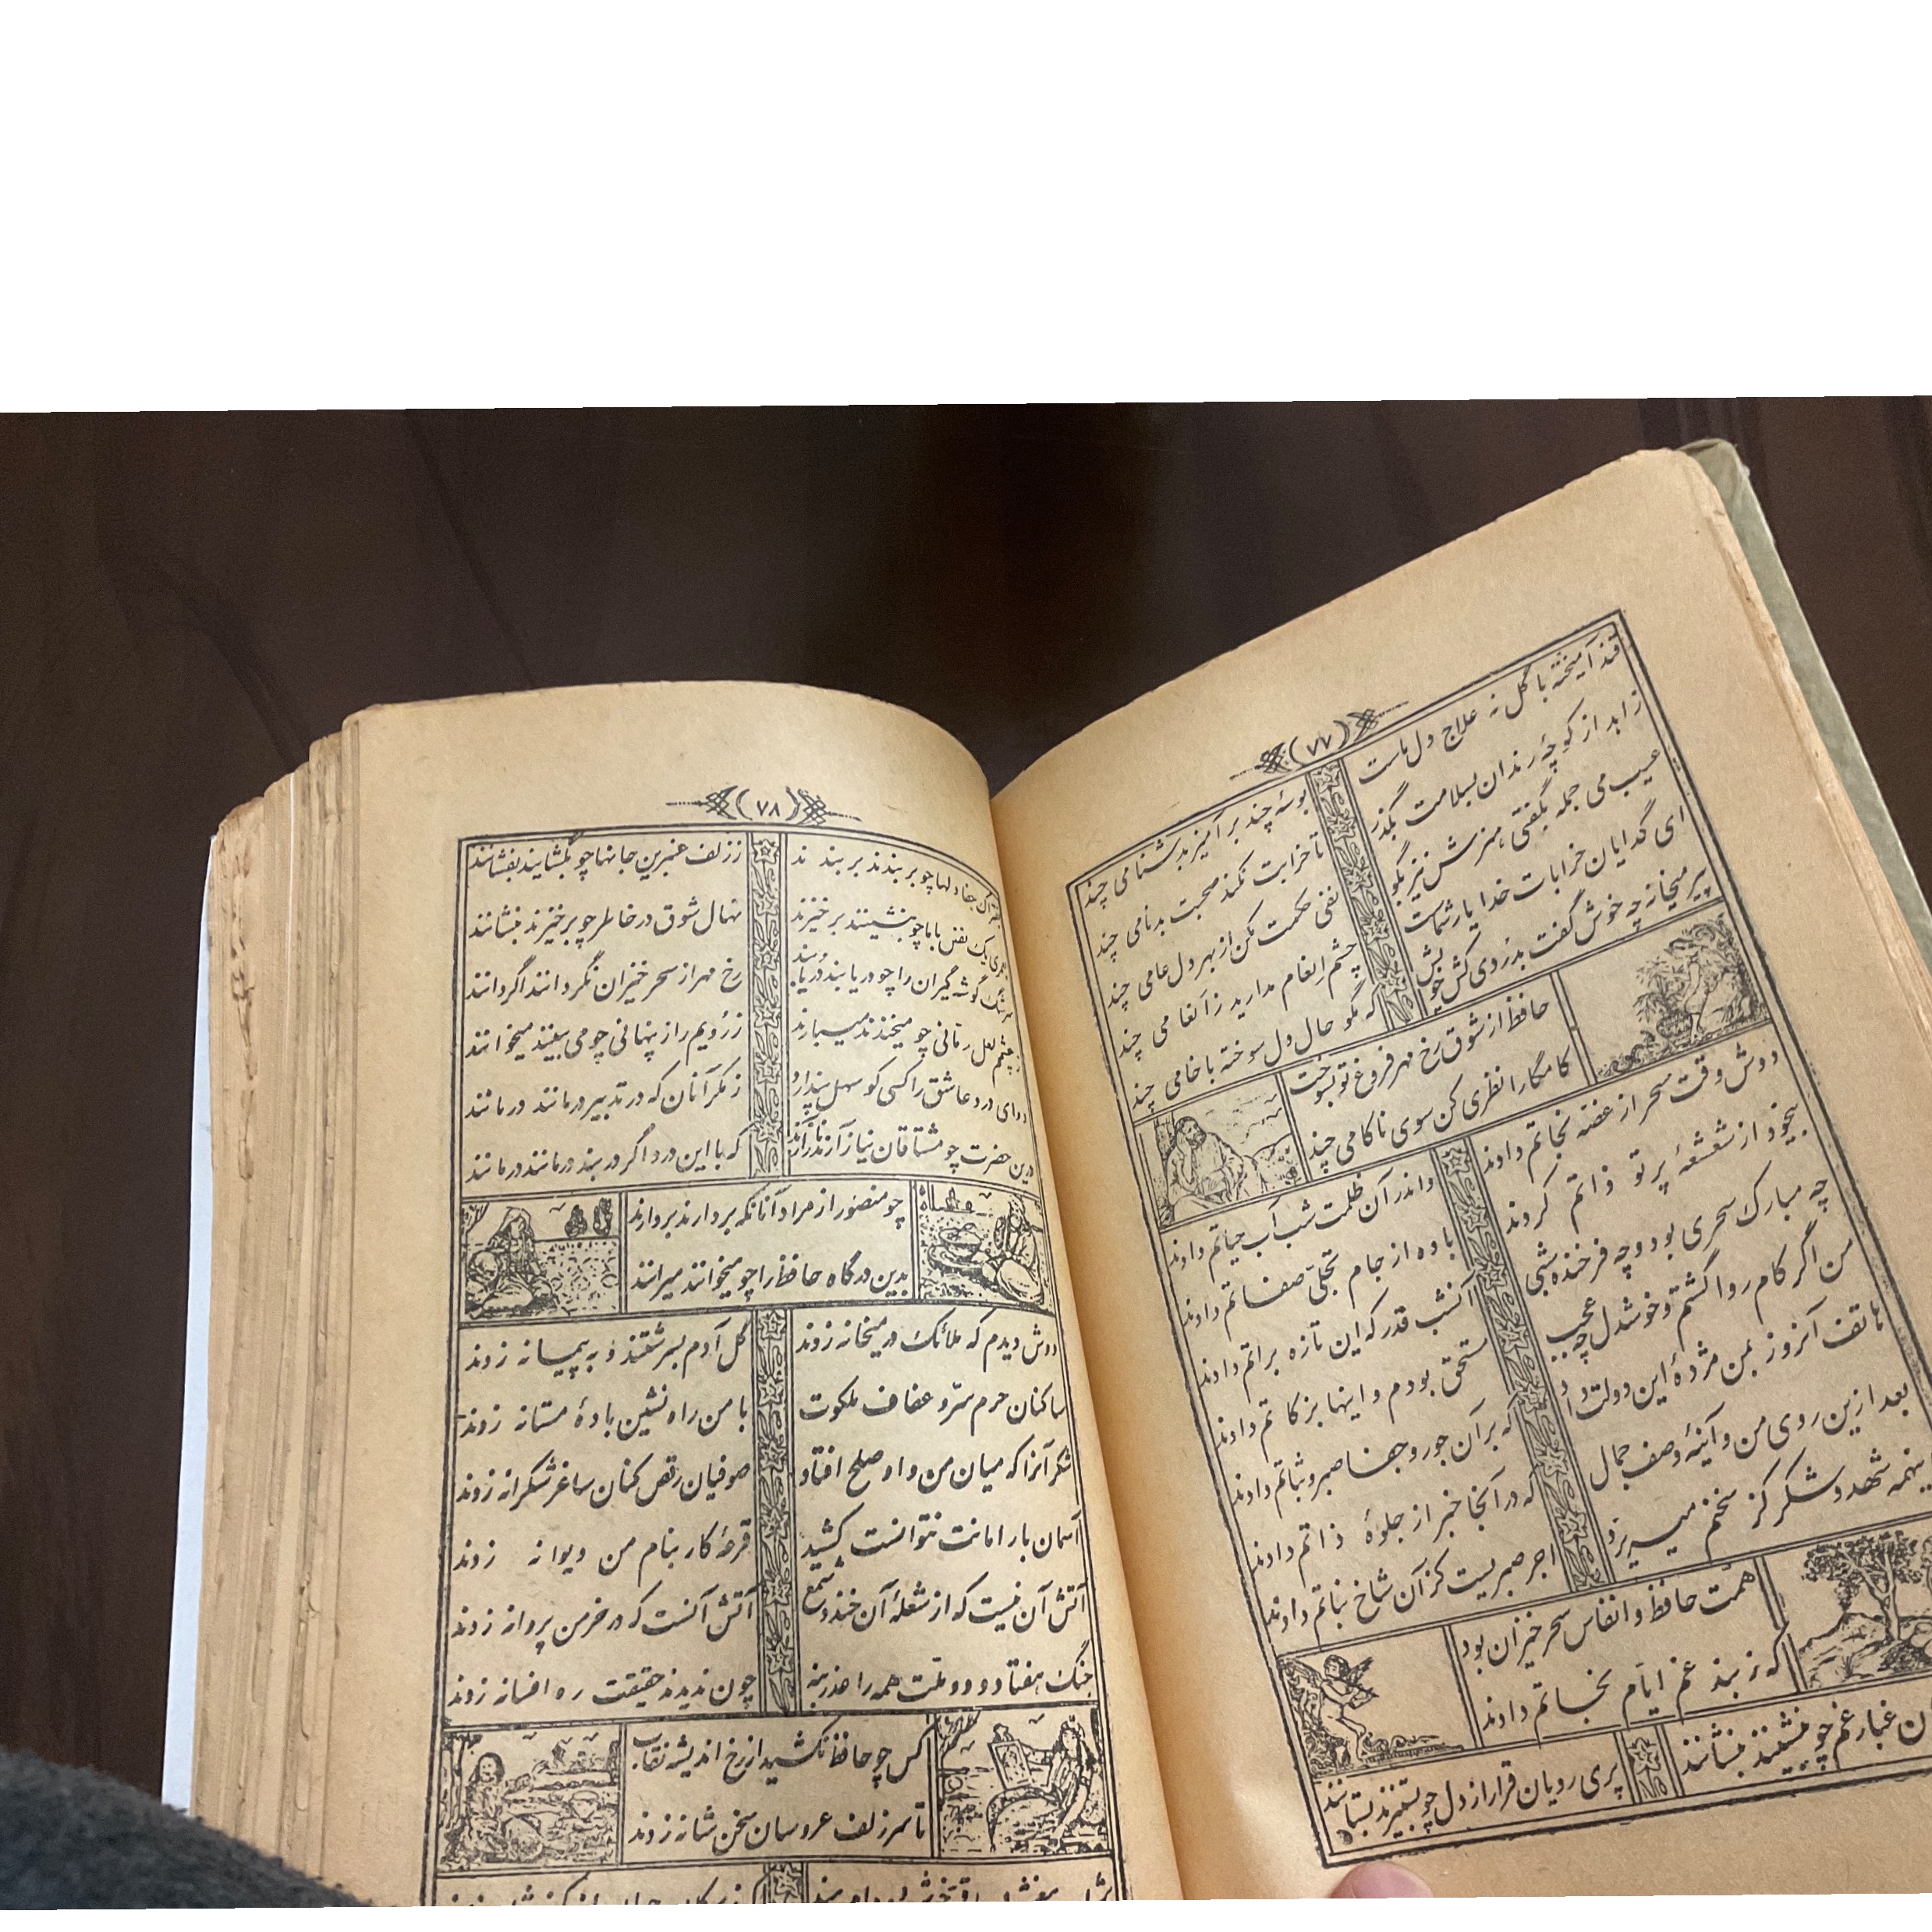 (۷۷)
قند آمیخته با گل نه علاج دل ماست بوسهٔ چند برآمیز بدشنامی چند
زاهد از کوچهٔ رندان بسلامت بگذر تا خرابت نکند صحبت بدنامی چند
عیب می جمله بگفتی هنرش نیز بگو نفی حکمت مکن از بهر دل عامی چند
ای گدایان خرابات خدا یار شماست چشم انعام مدارید ز انعامی چند
پیر میخانه چه خوش گفت بدردی کش خویش که مگو حال دل سوخته با خامی چند
حافظ از شوق رخ مهر فروغ تو بسوخت
کامگارا نظری کن سوی ناکامی چند
دوش وقت سحر از غصه نجاتم دادند واندر آن ظلمت شب آب حیاتم دادند
بیخود از شعشعهٔ پرتو ذاتم کردند باده از جام تجلّی صفاتم دادند
چه مبارک سحری بود و چه فرخنده شبی آنشب قدر که این تازه براتم دادند
من اگر کام روا گشتم و خوشدل چه عجب مستحق بودم و اینها بزکاتم دادند
هاتف آنروز بمن مژدهٔ این دولت داد که بر آن جور و جفا صبر و ثباتم دادند
بعد ازین روی من و آینهٔ وصف جمال که در آنجا خبر از جلوهٔ ذاتم دادند
اینهمه شهد و شکر کز سخنم میریزد اجر صبریست کز آن شاخ نباتم دادند
همّت حافظ و انفاس سحر خیزان بود
که ز بند غم ایّام نجاتم دادند
غبار غم چو بنشینند بنشانند پری رویان قرار از دل چو بستیزند بستانند
(۷۸)
جفا دلها چو بربندند بربندند ززلف عنبرین جانها چو بگشایند بفشانند
یک نفس با ما چو بنشینند برخیزند نهال شوق در خاطر چو برخیزند بنشانند
سرشک گوشه گیران را چو دریابند دُر یابند رخ مهر از سحر خیزان نگردانند اگر دانند
چشم لعل رمّانی چو میخندند میبارند ز رویم راز پنهانی چو می بینند میخوانند
دوای درد عاشق را کسی کو سهل پندارد ز فکر آنان که در تدبیر درمانند درمانند
درین حضرت چو مشتاقان نیاز آرند ناز آرند که با این درد اگر در بند درمانند درمانند
چو منصور از مراد آنانکه بردارند بردارند
بدین درگاه حافظ را چو میخوانند میرانند
دوش دیدم که ملائک در میخانه زدند گل آدم بسرشتند و به پیمانه زدند
ساکنان حرم سرّ و عفاف ملکوت با من راه نشین بادهٔ مستانه زدند
شکر آنرا که میان من و او صلح افتاد صوفیان رقص کنان ساغر شکرانه زدند
آسمان بار امانت نتوانست کشید قرعهٔ کار بنام من دیوانه زدند
آتش آن نیست که از شعلهٔ آن خندد شمع آتش آنست که در خرمن پروانه زدند
جنگ هفتاد و دو ملّت همه را عذر بنه چون ندیدند حقیقت ره افسانه زدند
کس چو حافظ نکشید از رخ اندیشه نقاب
تا سر زلف عروسان سخن شانه زدند